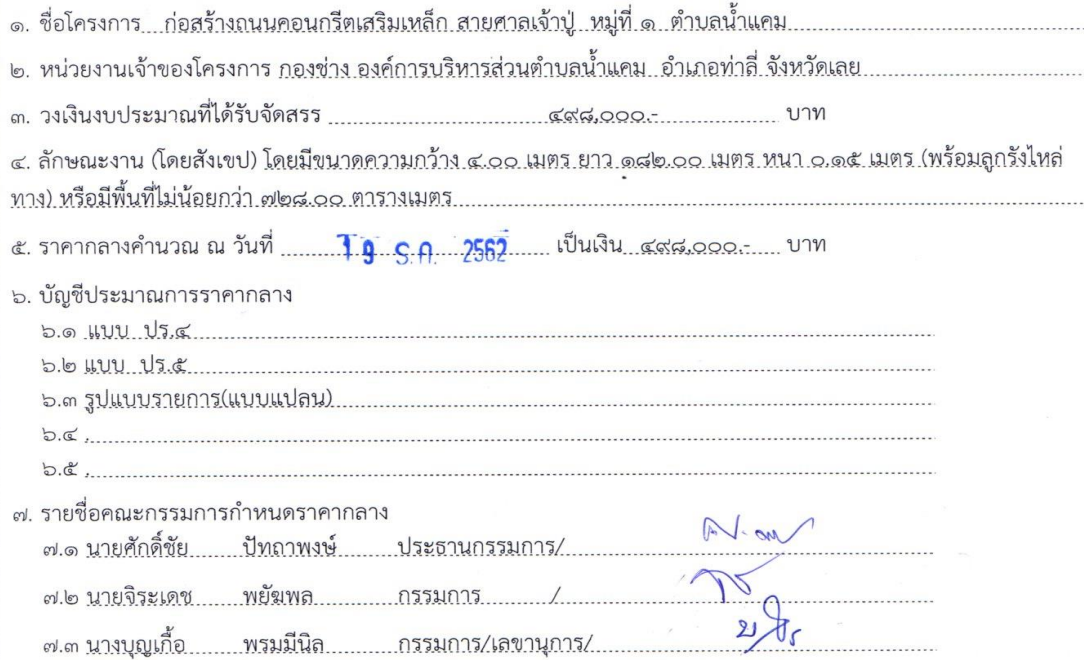 ๑. ชื่อโครงการ ก่อสร้างถนนคอนกรีตเสริมเหล็ก สายศาลเจ้าปู่ หมู่ที่ ๑ ตำบลน้ำแคม
๒. หน่วยงานเจ้าของโครงการ กองช่าง องค์การบริหารส่วนตำบลน้ำแคม อำเภอท่าลี่ จังหวัดเลย
๓. วงเงินงบประมาณที่ได้รับจัดสรร ๔๙๘,๐๐๐.- บาท
๔. ลักษณะงาน (โดยสังเขป) โดยมีขนาดความกว้าง ๔.๐๐ เมตร ยาว ๑๘๒.๐๐ เมตร หนา ๐.๑๕ เมตร (พร้อมลูกรังไหล่
ทาง) หรือมีพื้นที่ไม่น้อยกว่า ๗๒๘.๐๐ ตารางเมตร
๕. ราคากลางคำนวณ ณ วันที่ 19 ธ.ค. 2562 เป็นเงิน ๔๙๘,๐๐๐.- บาท
๖. บัญชีประมาณการราคากลาง
๖.๑ แบบ ปร.๔
๖.๒ แบบ ปร.๕
๖.๓ รูปแบบรายการ(แบบแปลน)
๖.๔ .
๖.๕ .
๗. รายชื่อคณะกรรมการกำหนดราคากลาง
๗.๑ นายศักดิ์ชัย ปัทถาพงษ์ ประธานกรรมการ/
๗.๒ นายจิระเดช พยัฆพล กรรมการ /
๗.๓ นางบุญเกื้อ พรมมีนิล กรรมการ/เลขานุการ/